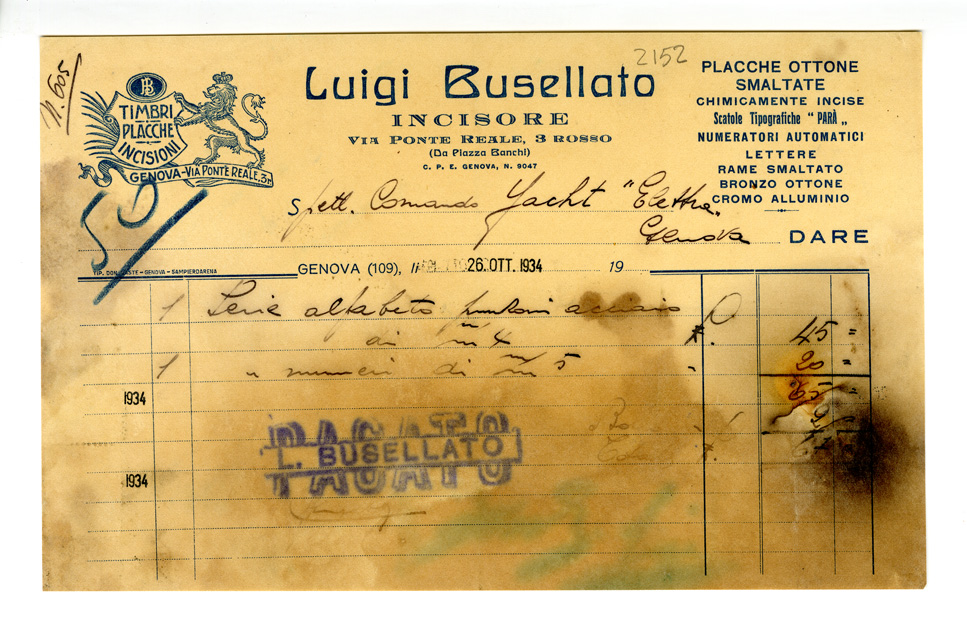 2152
n. 605
PB
TIMBRI
PLACCHE
INCISIONI
GENOVA - VIA PONTE REALE, 3 R
Luigi Busellato
INCISORE
VIA PONTE REALE, 3 ROSSO
(Da Piazza Banchi)
C. P. E. GENOVA, N. 9047
PLACCHE OTTONE
SMALTATE
CHIMICAMENTE INCISE
Scatole Tipografiche "PARÀ„
NUMERATORI AUTOMATICI
LETTERE
RAME SMALTATO
BRONZO OTTONE
CROMO ALLUMINIO
50
Spett. Comando Yacht "Elettra„
Genova
DARE
GENOVA - SAMPIERDARENA
GENOVA (109), li 26 OTT. 1934 19
1 Serie alfabeto punzoni acciaio
di m/m 4 £. 45 =
1 " numeri di m/m 5 " 20 =
1934 65
PAGATO
L. BUSELLATO
1934